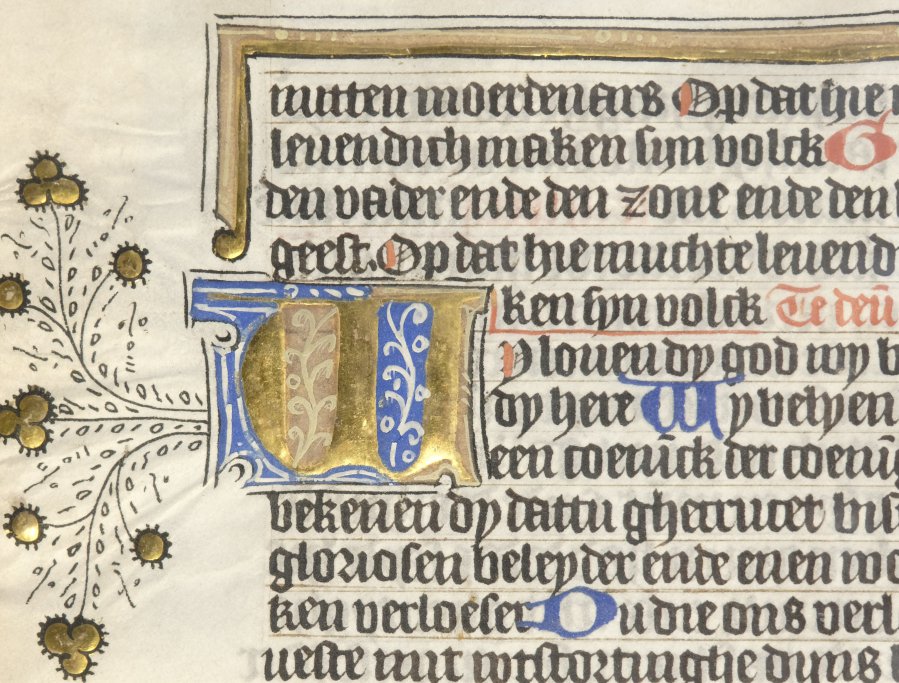 mitten moerdenars Op dat hie
leuendich maken sijn volck G
den vader ende den zone ende den
geest. Op dat hie muchte leuend
ken sijn volck Te deū
Wy louen dy god wy b
dy here Wy belyen
een coenick der coenig
bekenen dy dattu
gloriosen beleyder ende enen
ken verloeser Du die ons verl
ueste mit wtstortinghe dijns